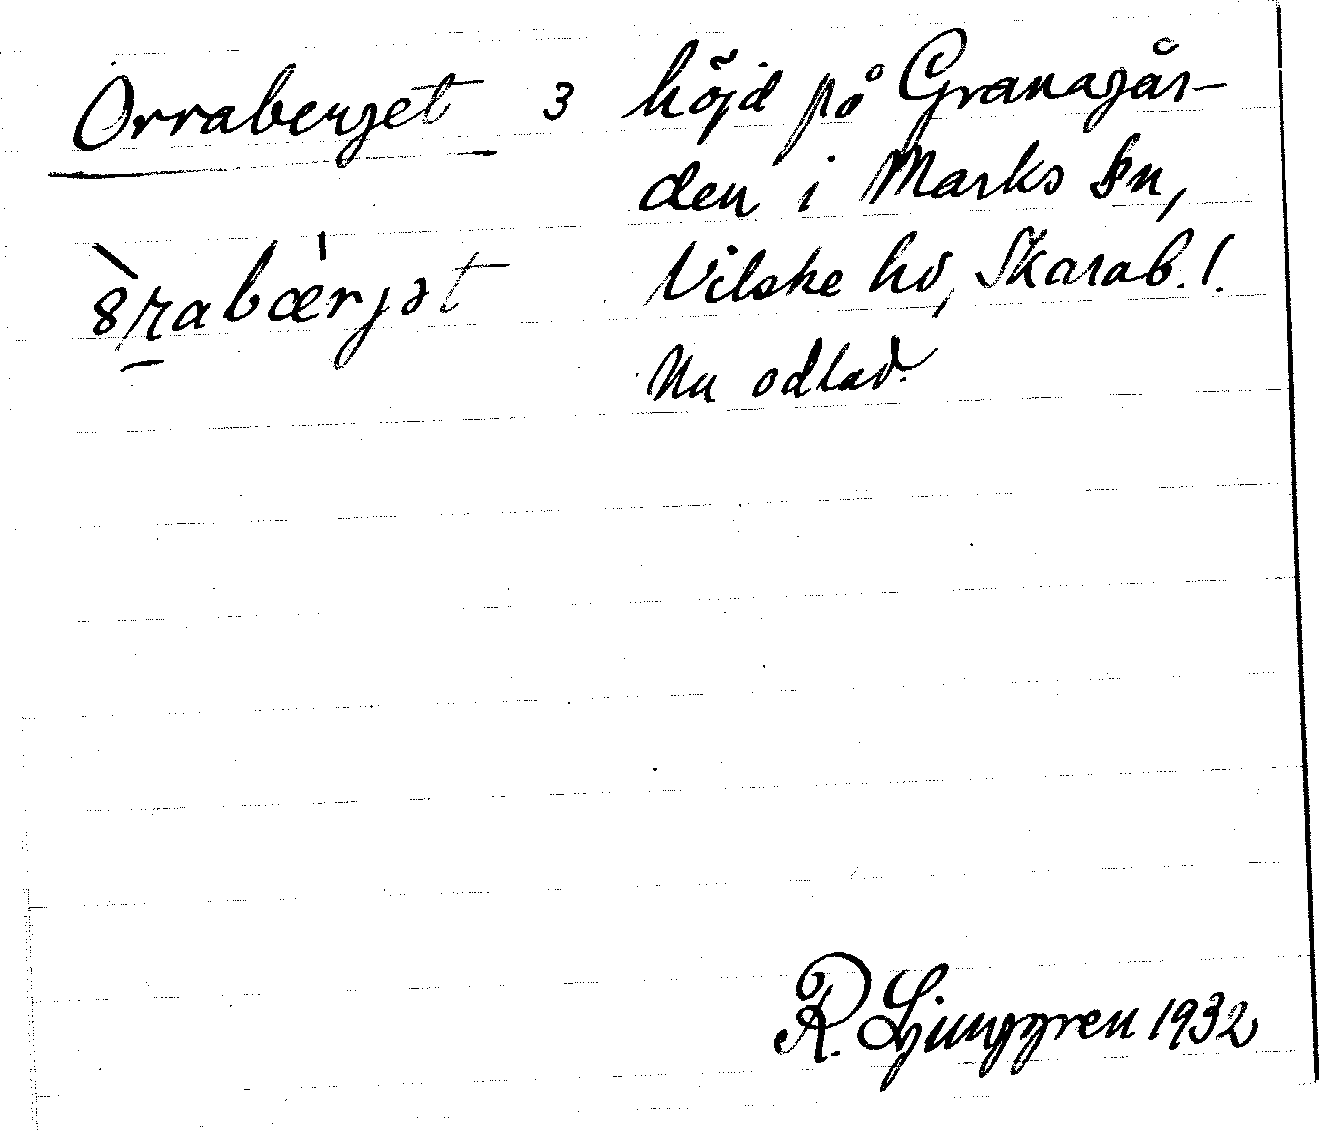 Orraberget 3 höjd på Granagår-
den i Marks sn,
Vilske hd, Skarab. l.
Nu odlad.
R. Ljunggren 1932